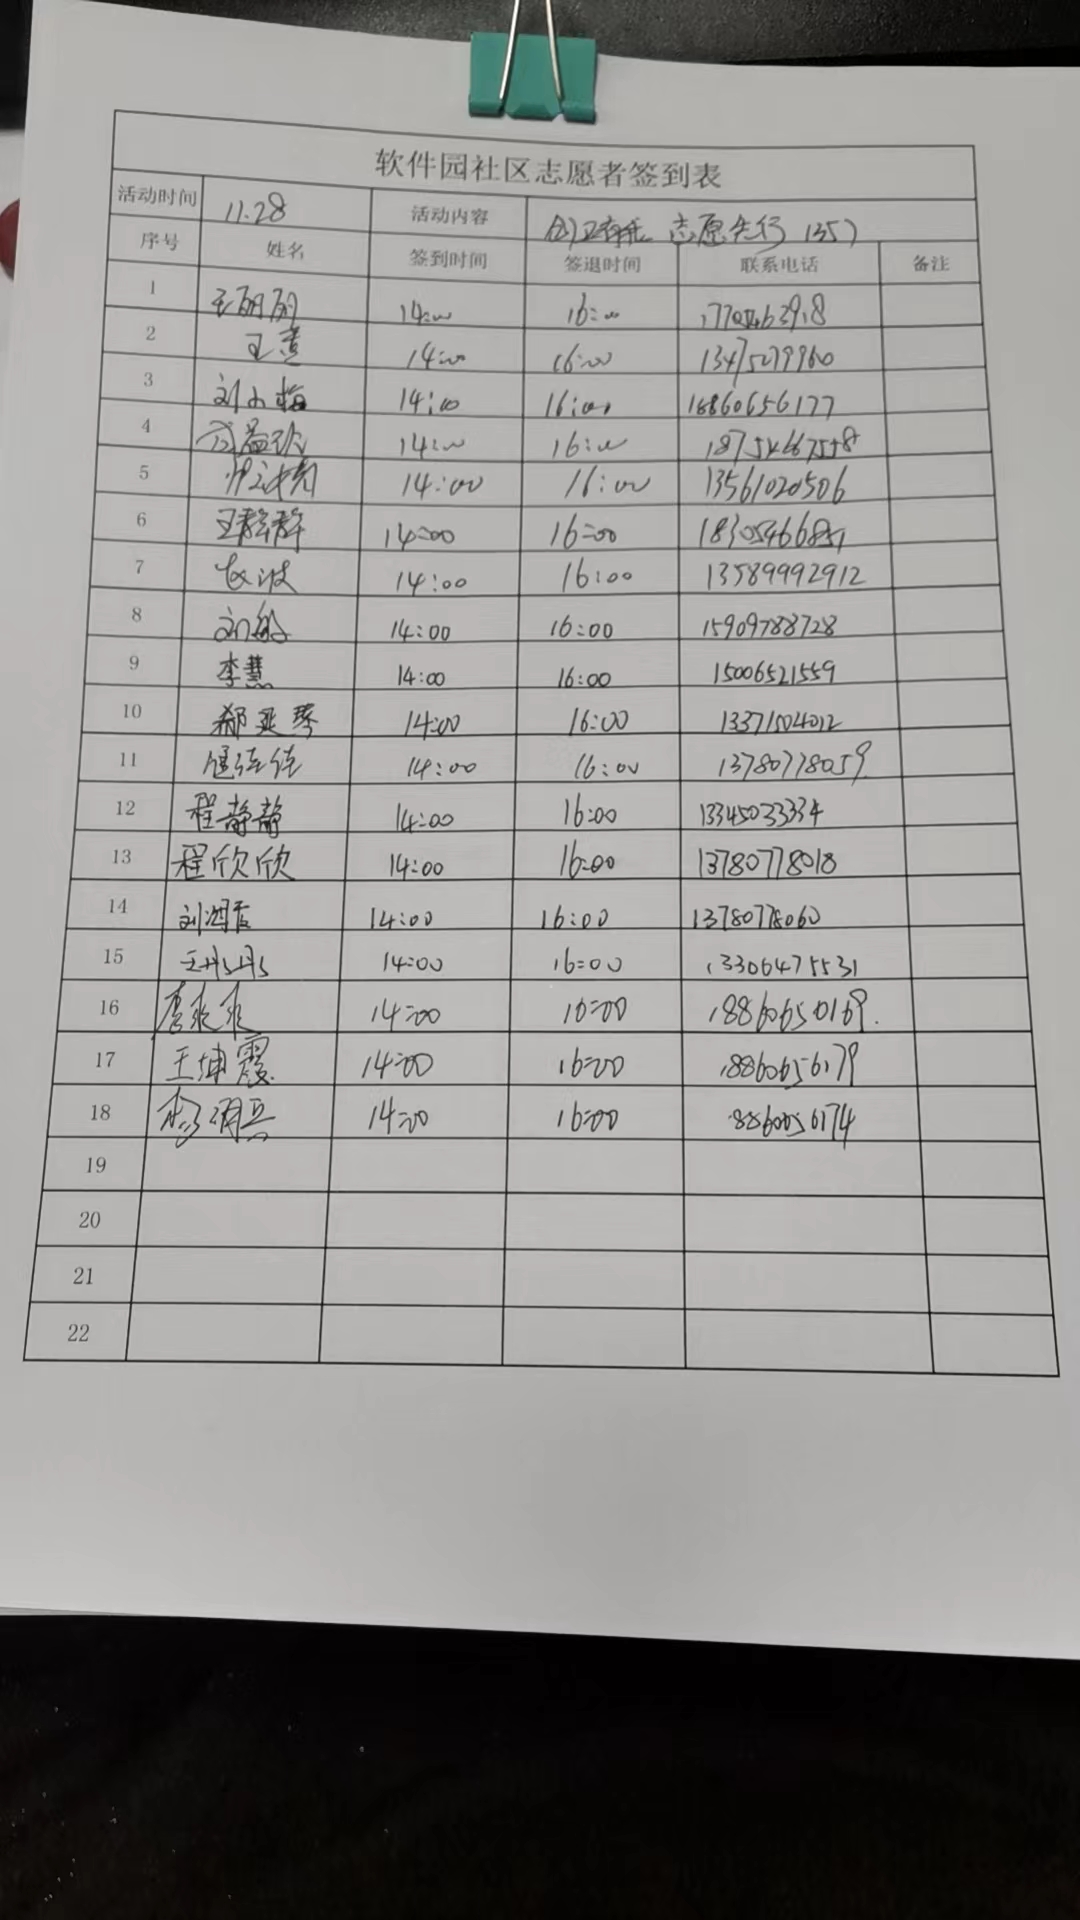 软件园社区志愿者签到表
活动时间 11.28 活动内容 创卫有我 志愿先行 1357
序号 姓名 签到时间 签退时间 联系电话 备注
1 王丽丽 14:00 16:00
2 王 14:00 16:00
3 刘小梅 14:00 16:00 18860656177
4 14:00 16:00 18754667558
5 14:00 16:00 13561020506
6 王静静 14:00 16:00
7 波 14:00 16:00 13589992912
8 刘 14:00 16:00 15909788728
9 李慧 14:00 16:00 15006521559
10 郝亚琴 14:00 16:00 13371504012
11 14:00 16:00 13780778059
12 程静静 14:00 16:00 13345033334
13 程欣欣 14:00 16:00 13780778018
14 刘鸿霞 14:00 16:00 13780778060
15 王丹丹 14:00 16:00 13306475531
16 14:00 16:00 18860650169
17 王坤霞 14:00 16:00 18860656179
18 杨明 14:00 16:00
19
20
21
22